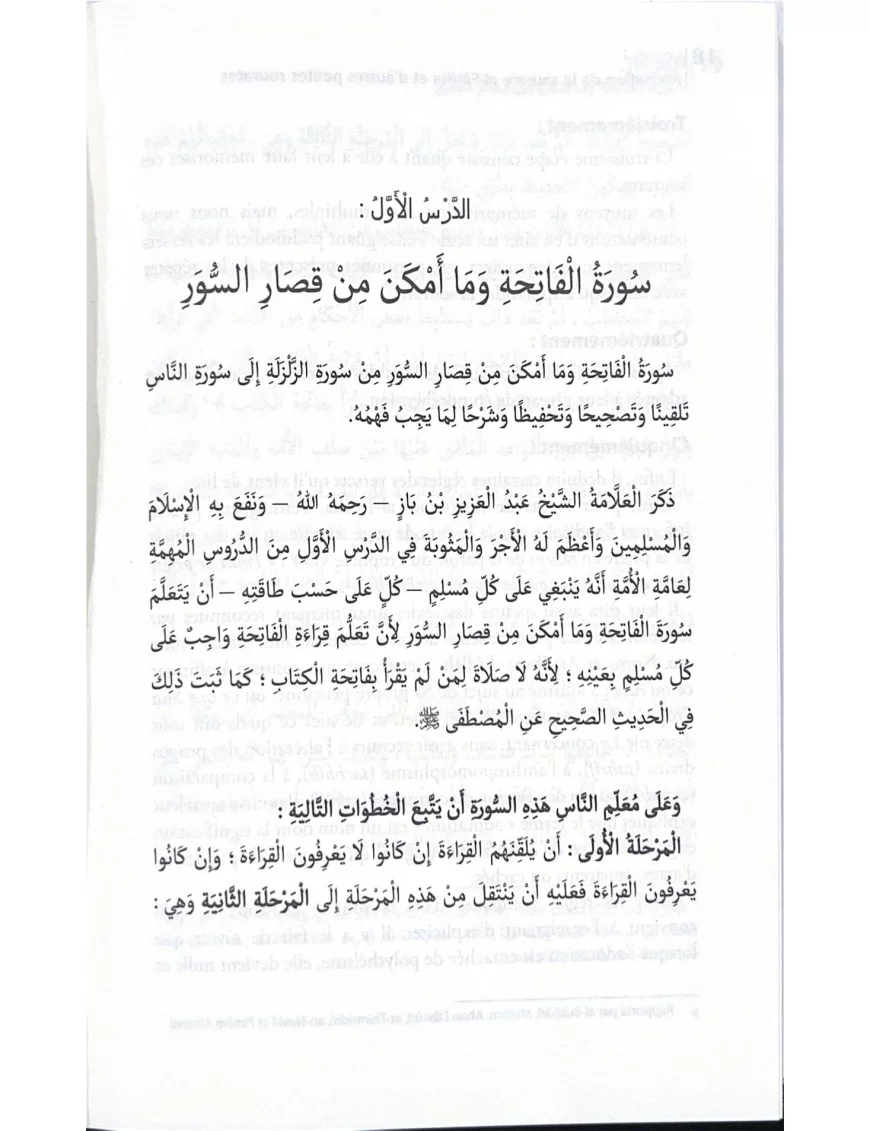 الدَّرْسُ الْأَوَّلُ :
سُورَةُ الْفَاتِحَةِ وَمَا أَمْكَنَ مِنْ قِصَارِ السُّوَرِ
سُورَةُ الْفَاتِحَةِ وَمَا أَمْكَنَ مِنْ قِصَارِ السُّوَرِ مِنْ سُورَةِ الزَّلْزَلَةِ إِلَى سُورَةِ النَّاسِ
تَلْقِينًا وَتَصْحِيحًا وَتَحْفِيظًا وَشَرْحًا لِمَا يَجِبُ فَهْمُهُ.
ذَكَرَ الْعَلَّامَةُ الشَّيْخُ عَبْدُ الْعَزِيزِ بْنُ بَازٍ – رَحِمَهُ اللهُ – وَنَفَعَ بِهِ الْإِسْلَامَ
وَالْمُسْلِمِينَ وَأَعْظَمَ لَهُ الْأَجْرَ وَالْمَثُوبَةَ فِي الدَّرْسِ الْأَوَّلِ مِنَ الدُّرُوسِ الْمُهِمَّةِ
لِعَامَّةِ الْأُمَّةِ أَنَّهُ يَنْبَغِي عَلَى كُلِّ مُسْلِمٍ – كُلٍّ عَلَى حَسْبَ طَاقَتِهِ – أَنْ يَتَعَلَّمَ
سُورَةَ الْفَاتِحَةِ وَمَا أَمْكَنَ مِنْ قِصَارِ السُّوَرِ لِأَنَّ تَعَلُّمَ قِرَاءَةِ الْفَاتِحَةِ وَاجِبٌ عَلَى
كُلِّ مُسْلِمٍ بِعَيْنِهِ ؛ لِأَنَّهُ لَا صَلَاةَ لِمَنْ لَمْ يَقْرَأْ بِفَاتِحَةِ الْكِتَابِ ؛ كَمَا ثَبَتَ ذَلِكَ
فِي الْحَدِيثِ الصَّحِيحِ عَنِ الْمُصْطَفَى ﷺ.
وَعَلَى مُعَلِّمِ النَّاسِ هَذِهِ السُّورَةَ أَنْ يَتَّبِعَ الْخُطُوَاتِ التَّالِيَةِ :
الْمَرْحَلَةُ الْأُولَى : أَنْ يُلَقِّنَهُمُ الْقِرَاءَةَ إِنْ كَانُوا لَا يَعْرِفُونَ الْقِرَاءَةَ ؛ وَإِنْ كَانُوا
يَعْرِفُونَ الْقِرَاءَةَ فَعَلَيْهِ أَنْ يَنْتَقِلَ مِنْ هَذِهِ الْمَرْحَلَةِ إِلَى الْمَرْحَلَةِ الثَّانِيَةِ وَهِيَ :